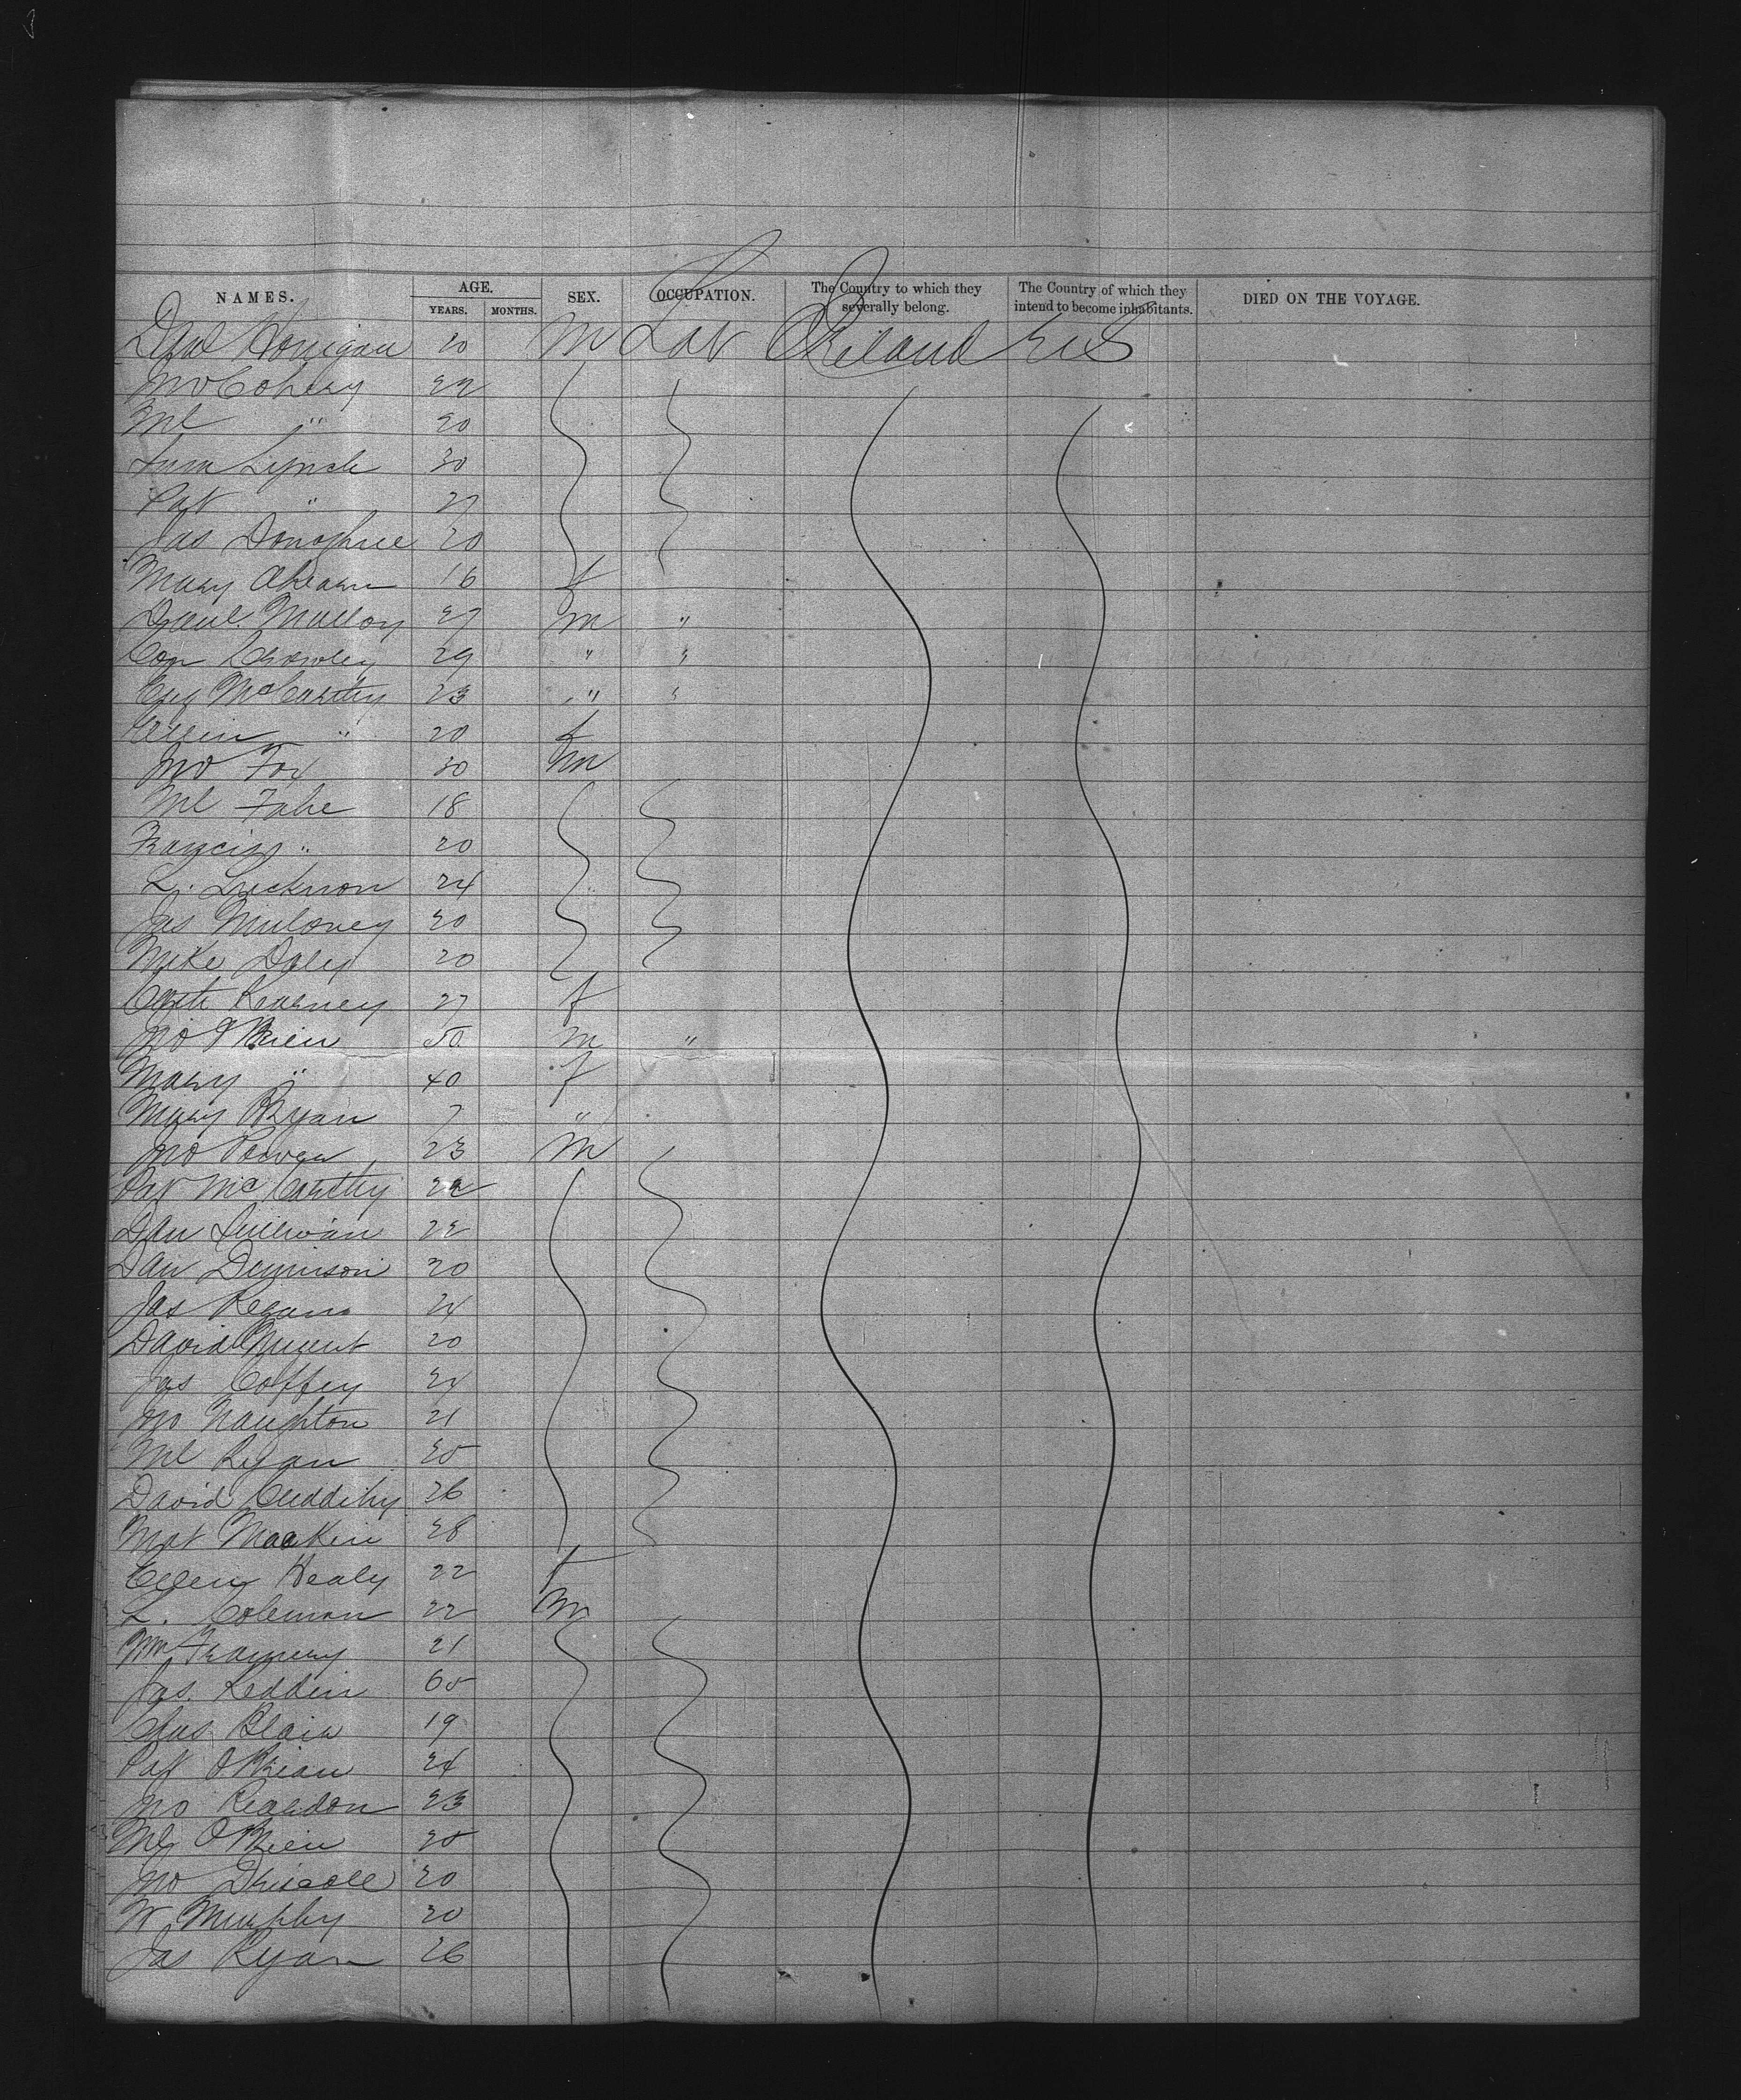 NAMES. AGE. SEX. OCCUPATION. The Country to which they severally belong. The Country of which they intend to become inhabitants. DIED ON THE VOYAGE.
YEARS. MONTHS.
Danl Honigan 20 M Lab Ireland U S
Jno Cohery 22
Ml " 20
Lynch 30
Pat " 27
Jas Donoghue 20
Mary Ahearn 16 f
Danl. Malloy 27 m "
Con Crowley 29 " "
Eug McCarthy 23 " "
" 20 f
Jno Fox 30 m
Ml Fahe 18
Francis " 20
L. 24
Jas Muloney 20
Mike Daley 20
Cath Kearney 27 f
Jno O'Brien 50 m "
Mary " 40 f
Mary Ryan 7 "
Jno Power 23 M
Pat McCarthy 22
Dan Sullivan 22
Dan Dennison 20
Jas Regan 24
David Nugent 20
Jas Coffey 24
Jno Naughton 21
Ml Ryan 25
David Cuddihy 26
Mat Mackin 28
Ellen Healy 22 f
L. Coleman 22 M
Wm 21
Jas. Leddin 65
Chas Blair 19
Pat O'Brian 24
Jno Reardon 23
Ml O'Brien 25
Jno Driscoll 20
W Murphy 20
Jas Ryan 26